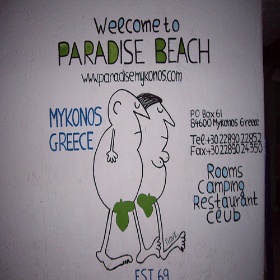 Welcome to
PARADISE BEACH
www.paradisemykonos.com
MYKONOS
GREECE
PO Box 61
84600 Mykonos Greece
Tel:+30 22890 22852
Fax+30 22890 24350
Rooms
Camping
Restaurant
Club
EST 69